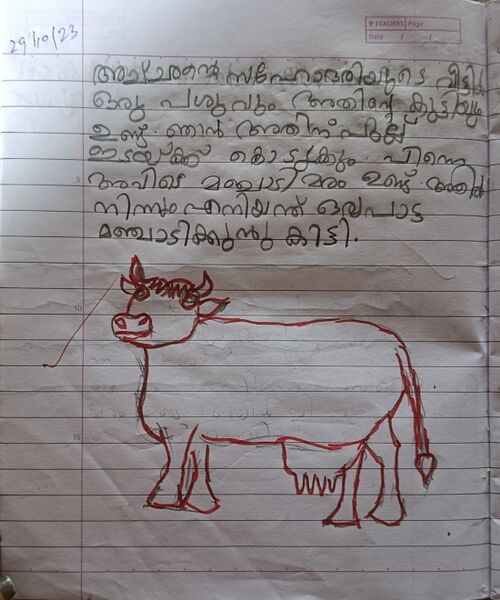 29/10/23
TEACHERS Page
Date / /
അച്ഛൻ്റെ സഹോദരിയുടെ വീട്ടിൽ
ഒരു പശുവും അതിൻ്റെ കുട്ടിയും
ഉണ്ട്. ഞാൻ അതിന് പുല്ല്
ഇടയ്ക്ക് കൊടുക്കും. പിന്നെ
അവിടെ മഞ്ചാടി മരം ഉണ്ട്. അതിൽ
നിന്നും എനിയ്ക്ക് ഒരുപാട
മഞ്ചാടിക്കുരു കിട്ടി.
5
10
15